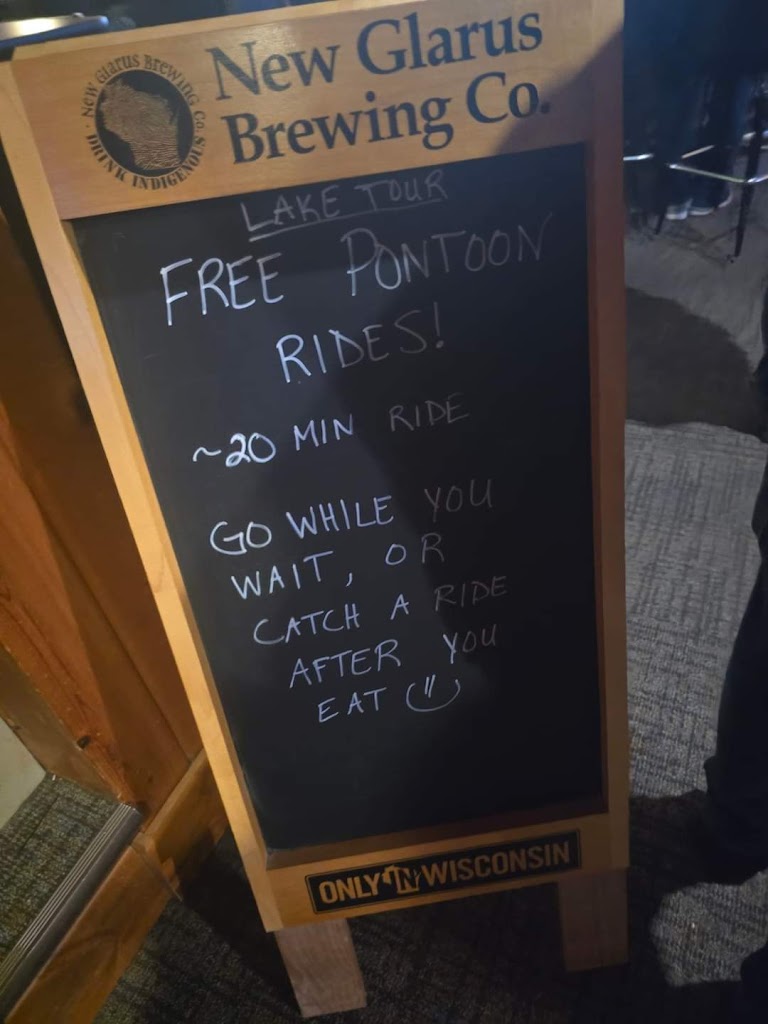 New Glarus
Brewing Co.
New Glarus Brewing Co.
DRINK INDIGENOUS
LAKE TOUR
FREE PONTOON
RIDES!
~20 MIN RIDE
GO WHILE YOU
WAIT, OR
CATCH A RIDE
AFTER YOU
EAT
ONLY IN WISCONSIN